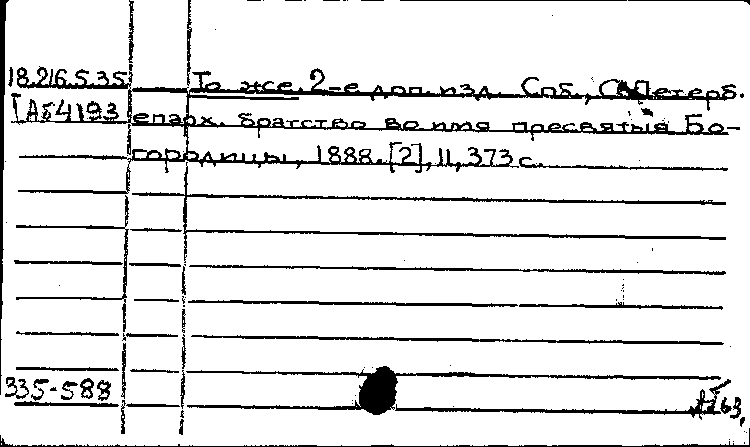 18.216.5.35 То же. 2-е доп. изд. Спб., С.Петерб.
[Аб4193 епарх. братство во имя пресвятыя Бо-
городицы, 1888. [2], II, 373 с.
335-588